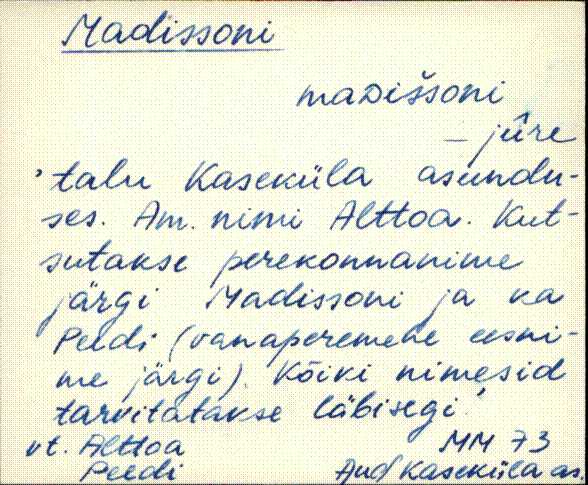 Madissoni
maDiššoni
– jûre
'talu Kaseküla asundu-
ses. Am. nimi Alttoa. Kut-
sutakse perekonnanime
järgi Madissoni ja ka
Peedi (vanaperemehe eesni-
me järgi). Kõiki nimesid
tarvitatakse läbisegi.'
vt. Alttoa MM 73
Peedi Aud Kaseküla as.